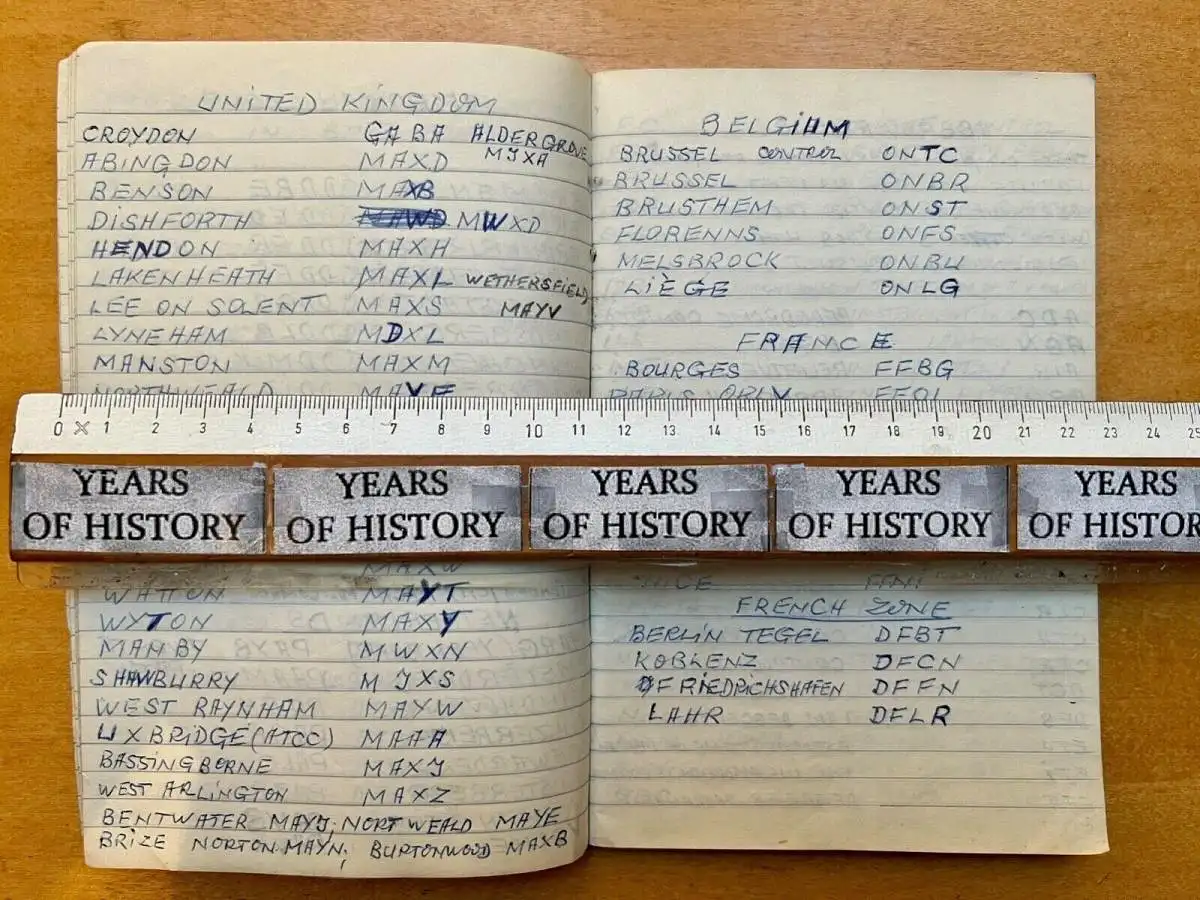 UNITED KINGDOM
CROYDON GABA ALDERGROVE
ABINGDON MAXD MJXA
BENSON MAXB
DISHFORTH MWXD
HENDON MAXH
LAKENHEATH MAXL WETHERSFIELD
LEE ON SOLENT MAXS MAYV
LYNEHAM MDXL
MANSTON MAXM
NORTHWEALD
0 1 2 3 4 5 6 7 8 9 10 11 12 13 14 15 16 17 18 19 20 21 22 23 24 25
YEARS YEARS YEARS YEARS YEARS
OF HISTORY OF HISTORY OF HISTORY OF HISTORY OF HISTOR
MAXW
WATTON MAYT
WYTON MAXY
MANBY MWXN
SHAWBURRY MJXS
WEST RAYNHAM MAYW
UXBRIDGE (ATCC) MAAA
BASSINGBORNE MAXJ
WEST ARLINGTON MAXZ
BENTWATER MAYJ; NORT WEALD MAYE
BRIZE NORTON MAYN; BURTONWOOD MAXB
BELGIUM
BRUSSEL CONTROL ONTC
BRUSSEL ONBR
BRUSTHEM ONST
FLORENNS ONFS
MELSBROCK ONBU
LIÈGE ONLG
FRANCE
BOURGES FFBG
PARIS ORLY
NICE
FRENCH ZONE
BERLIN TEGEL DFBT
KOBLENZ DFCN
FRIEDRICHSHAFEN DFFN
LAHR DFLR